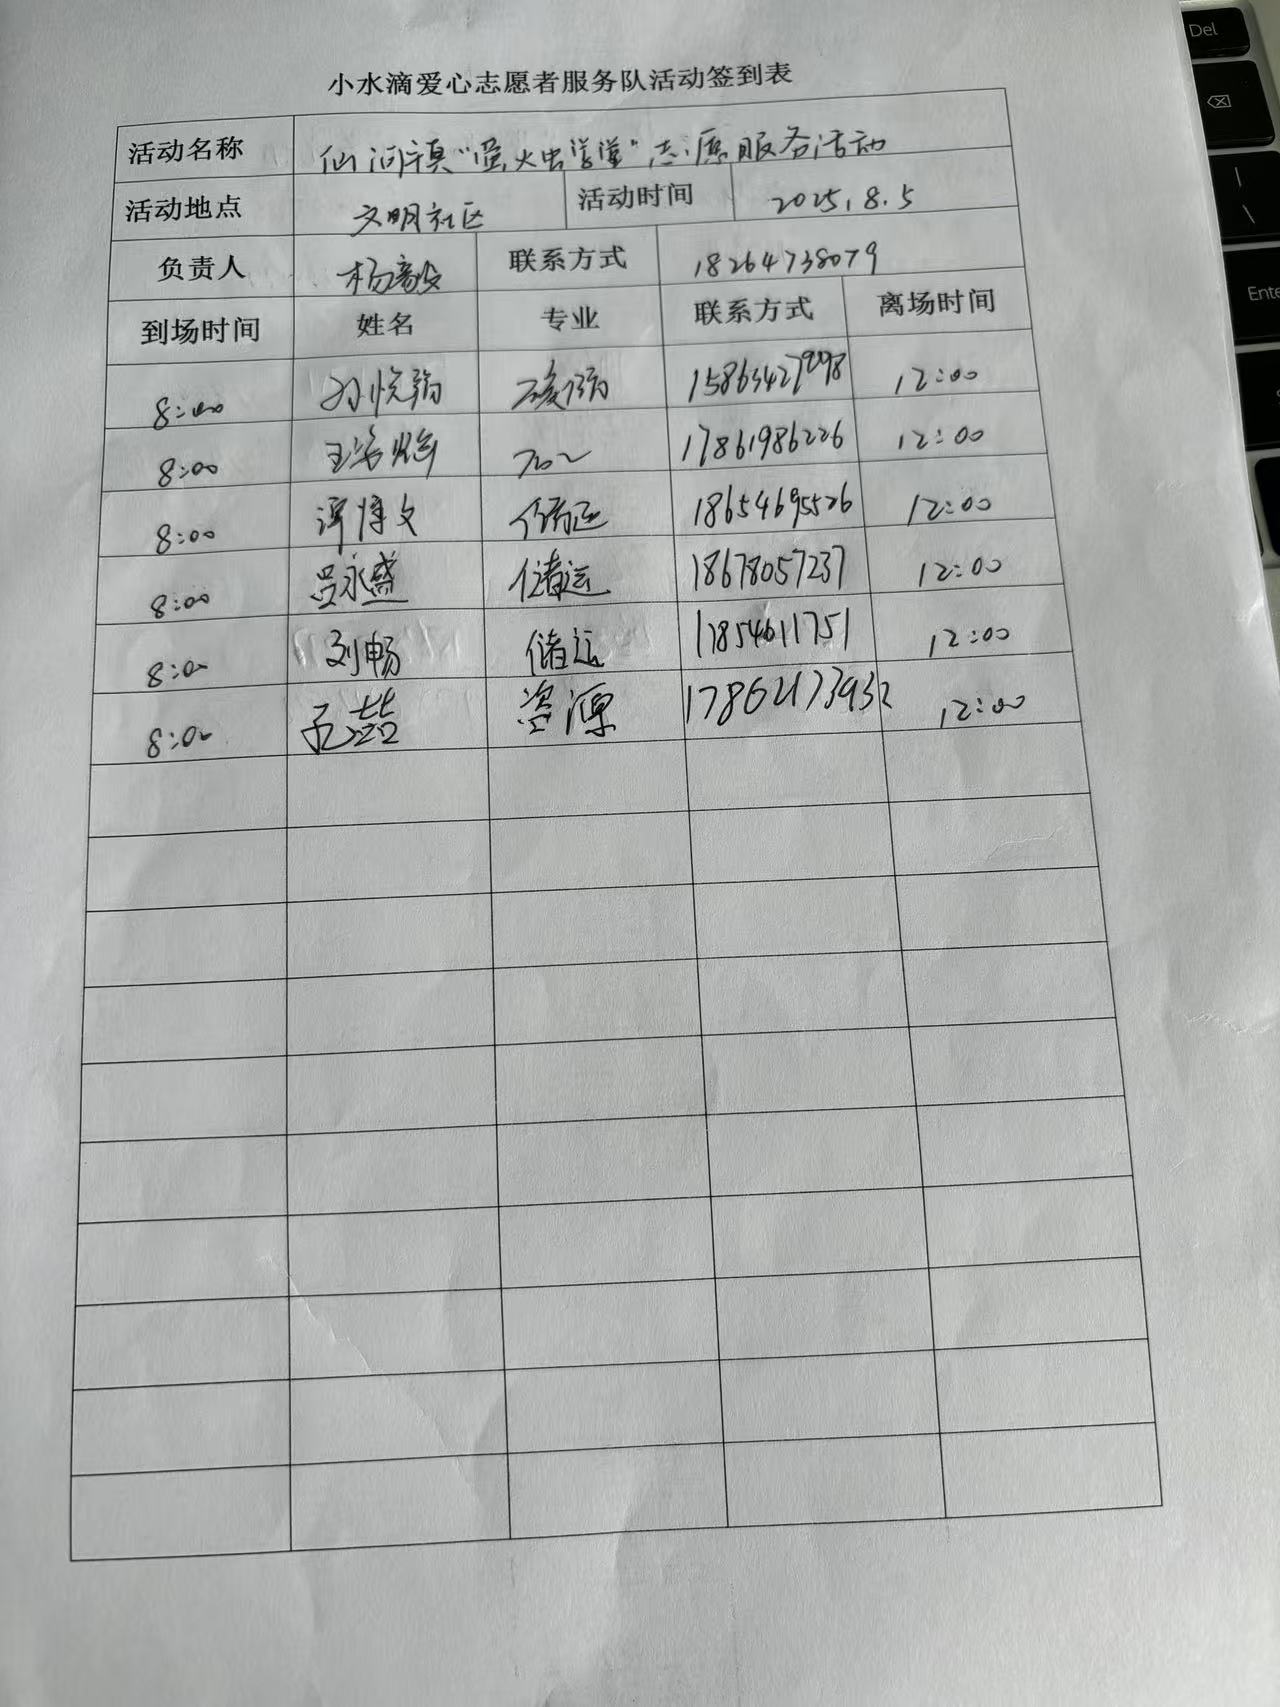 小水滴爱心志愿者服务队活动签到表
活动名称 仙河镇“萤火虫学堂”志愿服务活动
活动地点 文明社区 活动时间 2025.8.5
负责人 杨毅 联系方式 18264738079
到场时间 姓名 专业 联系方式 离场时间
8:00 12:00
8:00 17861986226 12:00
8:00 谭博文 储运 18654695526 12:00
8:00 吕永盛 储运 18678057237 12:00
8:00 刘畅 储运 17854611751 12:00
8:00 孔喆 资源 17862173932 12:00
Del
Ente